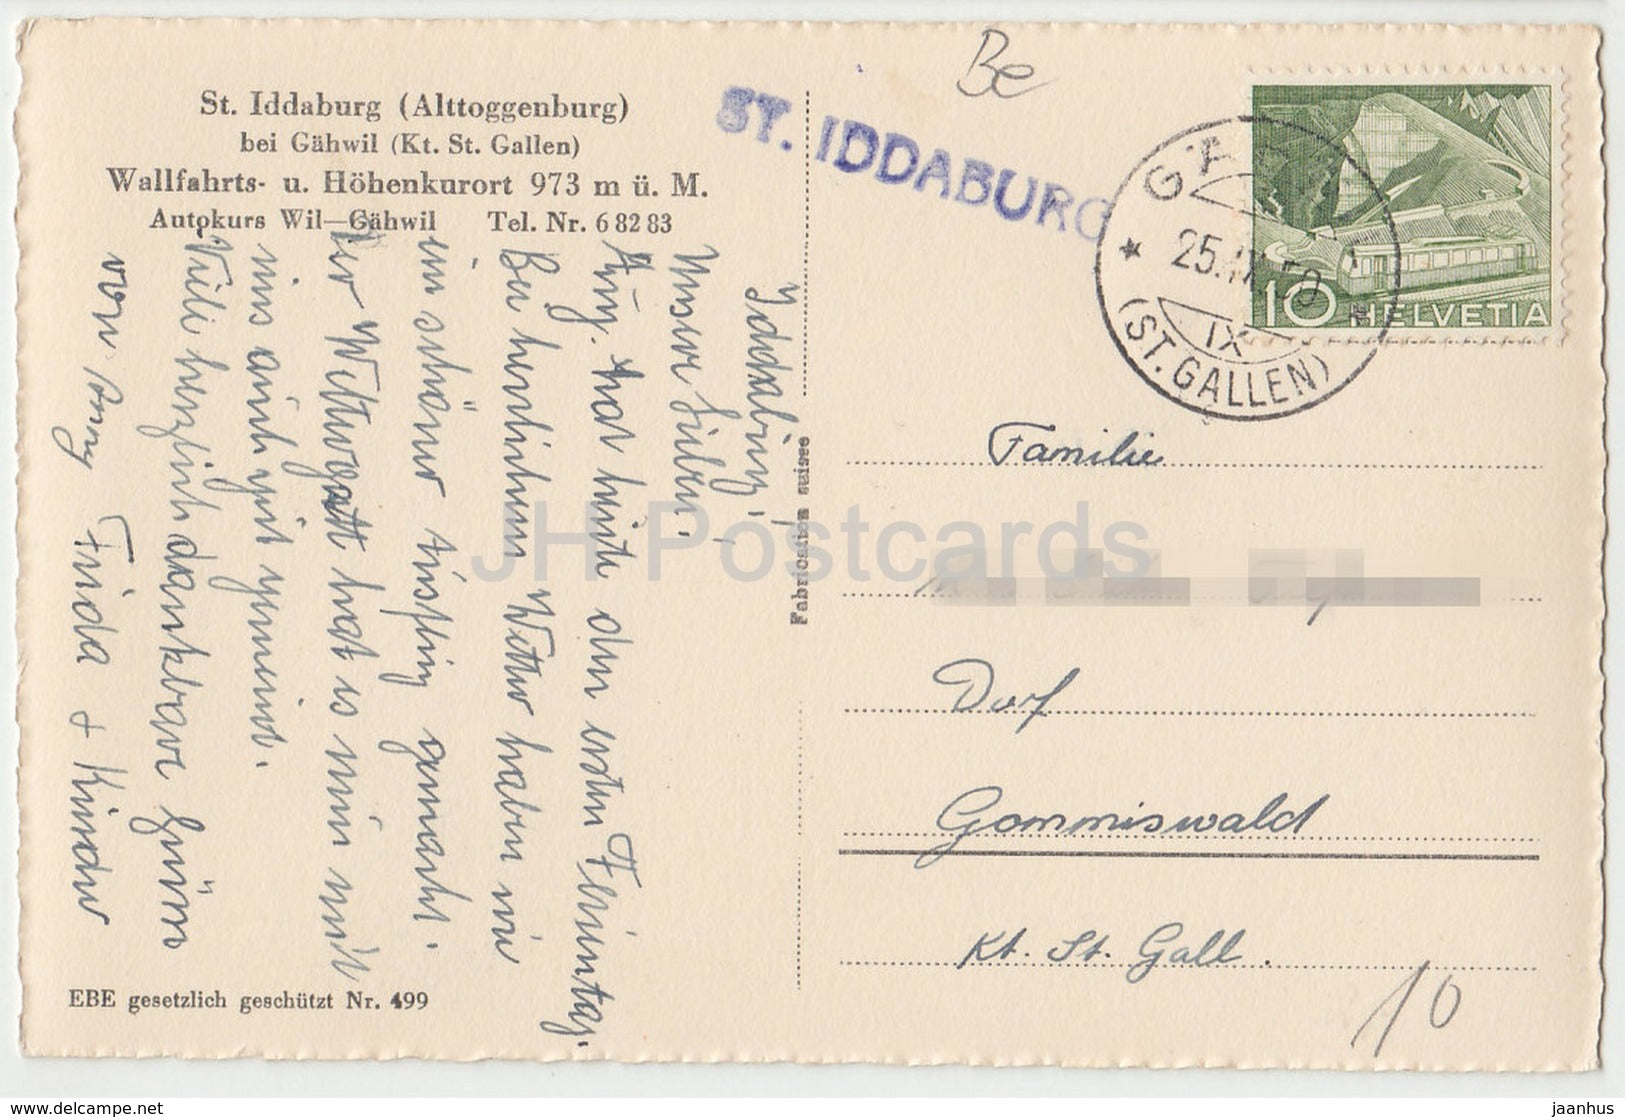 St. Iddaburg (Alttoggenburg)
bei Gähwil (Kt. St. Gallen)
Wallfahrts- u. Höhenkurort 973 m ü. M.
Autokurs Wil—Gähwil Tel. Nr. 6 82 83
Iddaburg,
Unsere Lieben,
Amy. hat heute den ersten Ferientag.
Bei herrlichem Wetter haben wir
ein schöner Ausflug gemacht.
Der Wettergott hat es nun mit
uns auch gut gemeint.
Viele herzlich dankbare Grüsse
von Amy Frida + Kinder
EBE gesetzlich geschützt Nr. 499
Fabrication suisse
Be
ST. IDDABURG
GÄHWIL
25. 50
IX
(ST. GALLEN)
10 HELVETIA
Familie
Dorf
Gommiswald
Kt. St. Gall.
10
JH Postcards
jaanhus © www.delcampe.net